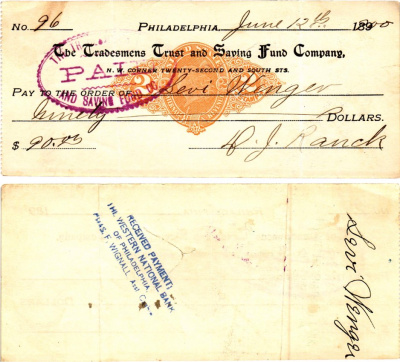 No. 96 Philadelphia, June 12th 1900
The Tradesmens Trust and Saving Fund Company,
N. W. Corner Twenty-Second and South Sts.
PAID
AND SAVING FUND CO
Pay to the order of Levi Wenger
Ninety Dollars.
$ 90.00 D. J. Ranck
RECEIVED PAYMENT
THE WESTERN NATIONAL BANK
OF PHILADELPHIA.
CHAS. F. WIGNALL Asst
Levi Wenger